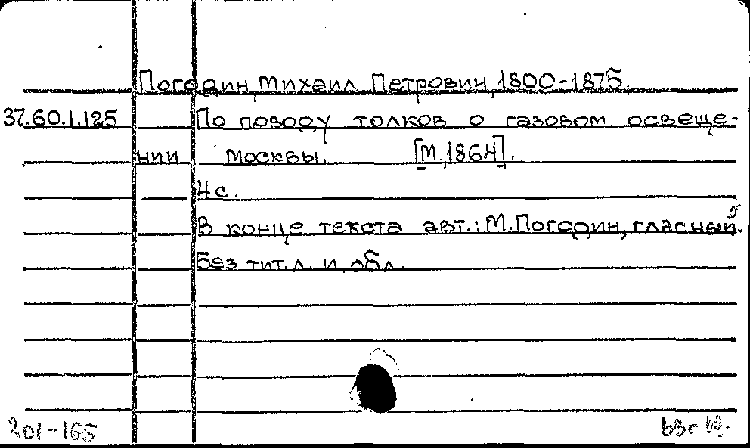 Погодин, Михаил Петрович, 1800-1875.
37.60.1.125 По поводу толков о газовом освеще-
нии Москвы. [М, 1864].
4 с.
В конце текста авт.: М.Погодин, гласный.
Без тит.л. и обл.
201-165